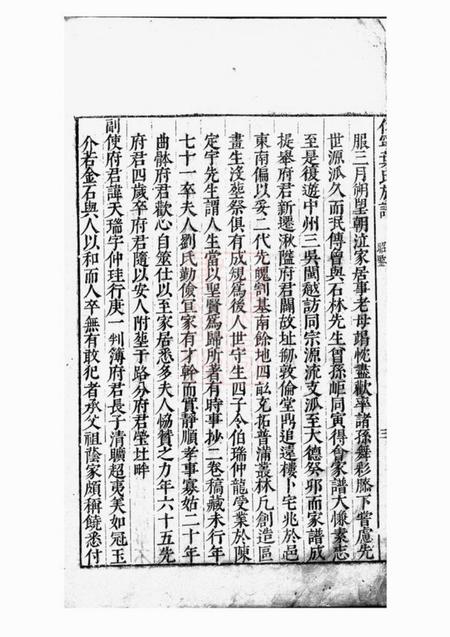 仁寧葉氏族譜
服三月朔望朝涖家居事老母竭忱盡歡率諸孫舞彩膝下嘗慮先
世源派久而珉傳曾與石林先生曾孫岠同寅得會家譜大慊素志
至是復遊中州三吳閩越訪同宗源流支派至大德癸卯而家譜成
提舉府君新遷湫隘府君闢故址刱敦倫堂門追遠樓卜宅兆於邑
東南偏以妥二代先魄割基南餘地四畝充拓普滿叢林凡創造區
畫生沒塟祭俱有成規為後人世守生四子令伯瑞仲龍受業於陳
定宇先生謂人生當以聖賢為歸所著有時事抄二卷稿藏未行年
七十一卒夫人劉氏勤儉宜家有才幹而實靜順孝事寡始二十年
曲骵府君歡心自筮仕以至家居悉多夫人協贊之力年六十五先
府君四歲卒府君隨以安人附塟于路分府君塋圵畔
副使府君諱天瑞字仲珪行庚一判簿府君長子清曠超夷美如冠玉
介若金石與人以和而人卒無有敢犯者承父祖蔭家頗稱饒悉付